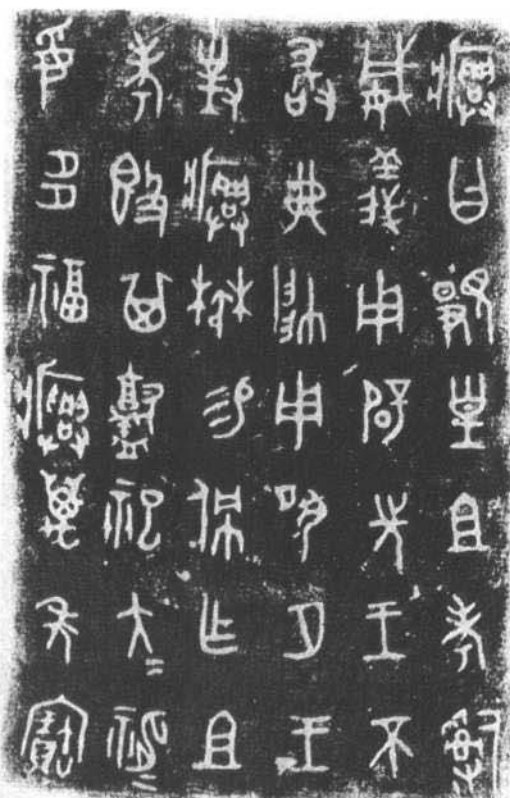 㾓曰覭皇且考𤔲
威義用辟先王不
敢弗帥用夙夕王
對㾓楙易佩乍且
考𣪘其祀大=神=
妥多福㾓萬年寶